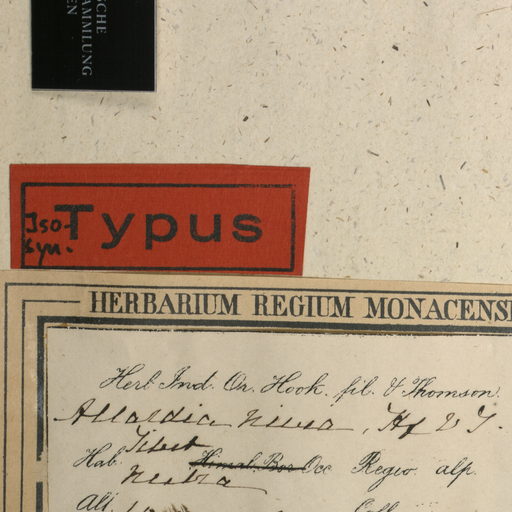 CHE
AMMLUNG
EN
Iso-
syn.
Typus
HERBARIUM REGIUM MONACENS
Herb. Ind. Or. Hook. fil. & Thomson.
Allardia nivea, Hf & T.
Tibet
Hab. Himal. Bor Occ Regio alp.
Nubra
Alt.
Coll